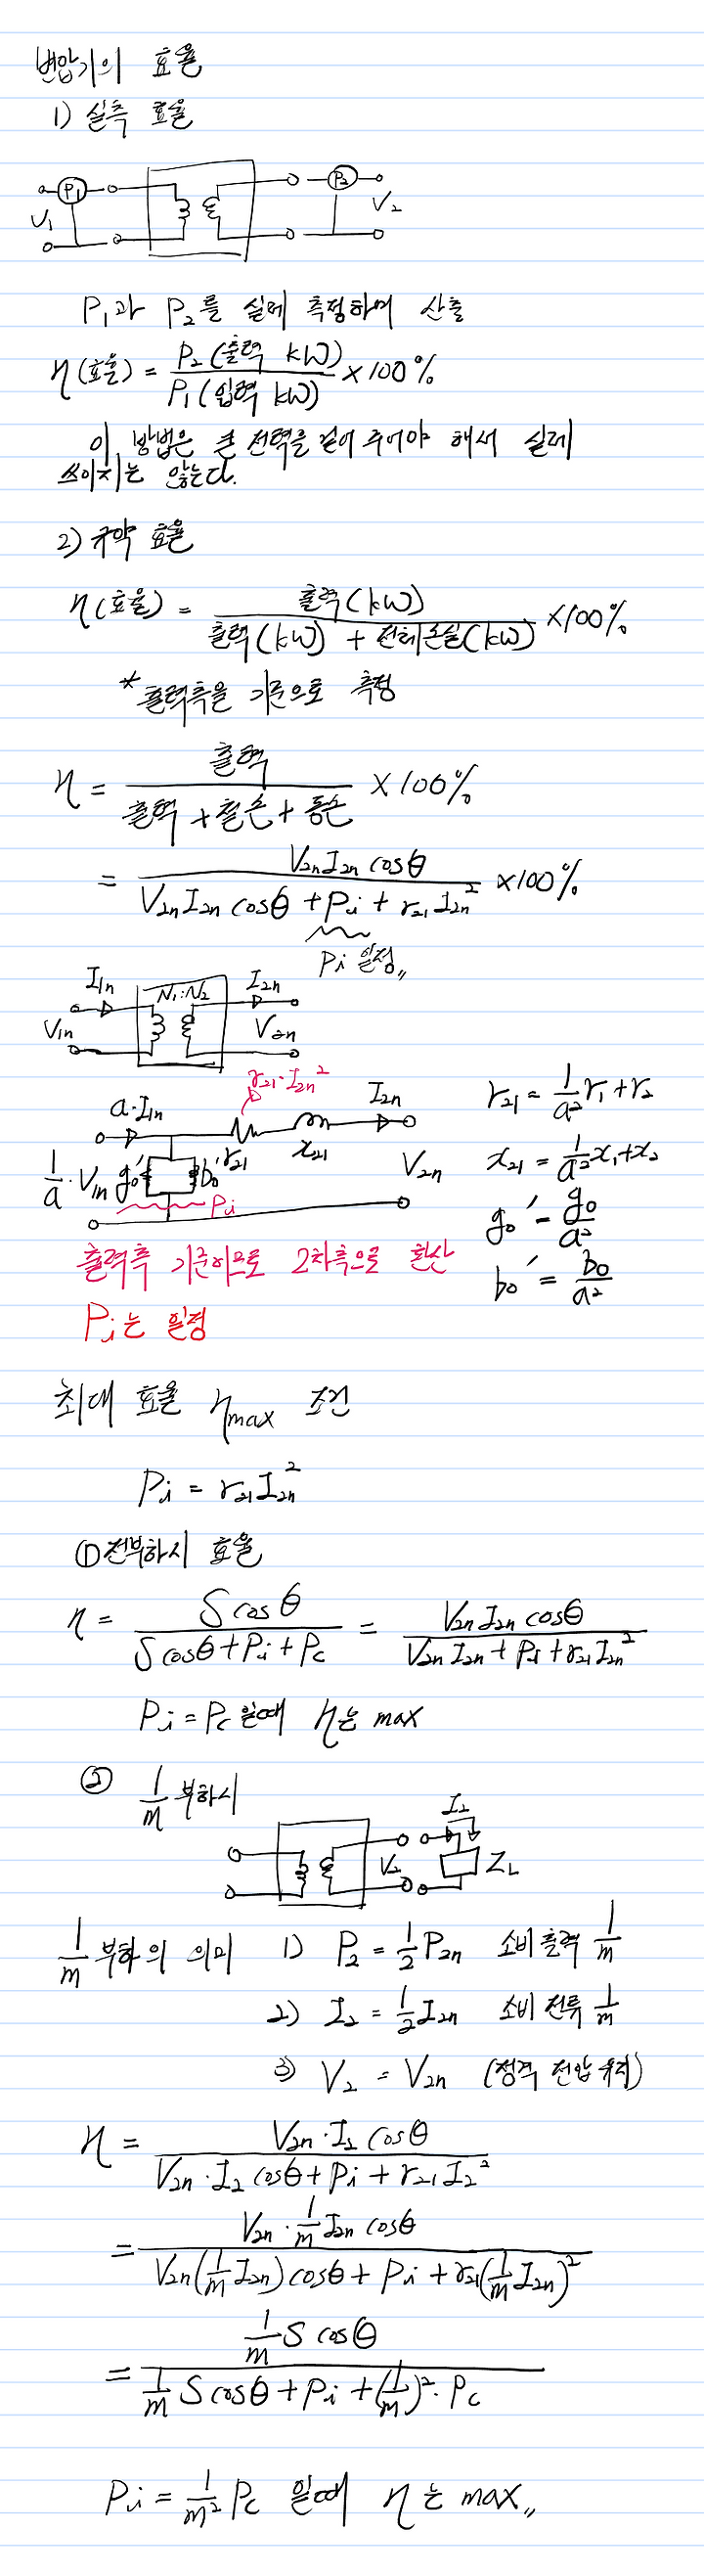 변압기의 효율
1) 실측 효율
P₁ P₂
V₁ V₂
P₁과 P₂를 실제 측정하여 산출
η(효율) = P₂(출력 kW) / P₁(입력 kW) × 100%
이 방법은 큰 전력을 걸어 주어야 해서 실제
쓰이지는 않는다.
2) 규약 효율
η(효율) = 출력(kW) / 출력(kW) + 전체손실(kW) × 100%
* 출력측을 기준으로 측정
η = 출력 / 출력 + 철손 + 동손 × 100%
= V₂ₙI₂ₙ cosθ / V₂ₙI₂ₙ cosθ + Pi + r₂₁I₂ₙ² × 100%
Pi 일정〃
I₁ₙ N₁:N₂ I₂ₙ
V₁ₙ V₂ₙ
r₂₁·I₂ₙ²
a·I₁ₙ I₂ₙ r₂₁ = 1/a² r₁ + r₂
1/a·V₁ₙ g₀' b₀' r₂₁ x₂₁ V₂ₙ x₂₁ = 1/a² x₁ + x₂
Pi g₀' = g₀/a²
출력측 기준이므로 2차측으로 환산 b₀' = b₀/a²
Pi는 일정
최대 효율 ηmax 조건
Pi = r₂₁I₂ₙ²
① 전부하시 효율
η = S cosθ / S cosθ + Pi + Pc = V₂ₙI₂ₙ cosθ / V₂ₙI₂ₙ + Pi + r₂₁I₂ₙ²
Pi = Pc 일때 η는 max
② 1/m 부하시
I₂
V₂ ZL
1/m 부하의 의미 1) P₂ = 1/2 P₂ₙ 소비 출력 1/m
2) I₂ = 1/2 I₂ₙ 소비 전류 1/m
3) V₂ = V₂ₙ (정격 전압 유지)
η = V₂ₙ·I₂ cosθ / V₂ₙ·I₂ cosθ + Pi + r₂₁I₂²
= V₂ₙ·1/m I₂ₙ cosθ / V₂ₙ(1/m I₂ₙ) cosθ + Pi + r₂₁(1/m I₂ₙ)²
= 1/m S cosθ / 1/m S cosθ + Pi + (1/m)²·Pc
Pi = 1/m² Pc 일때 η는 max〃